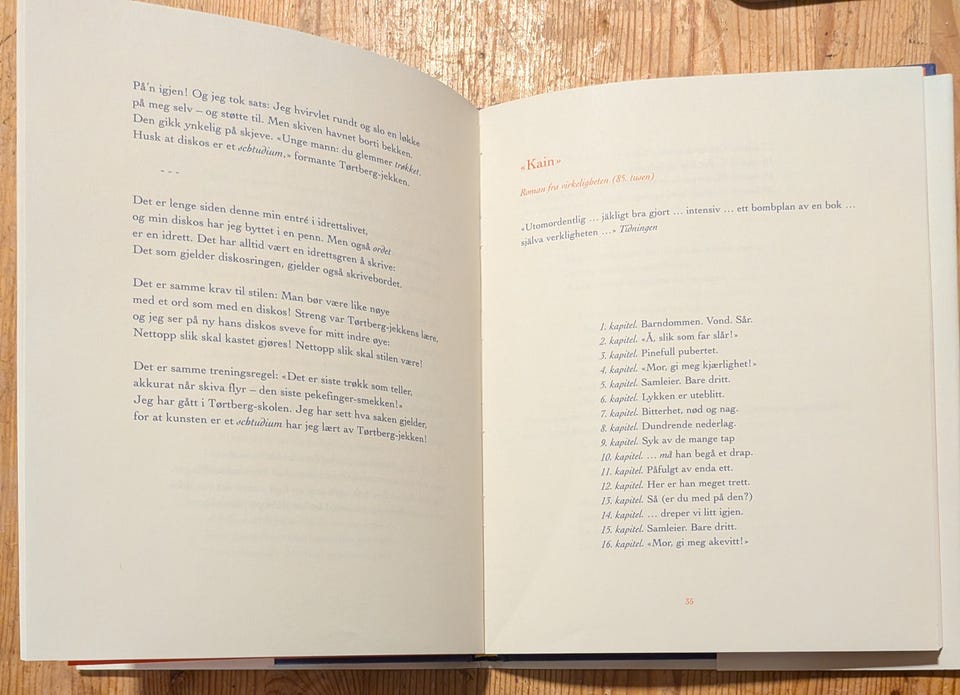 På'n igjen! Og jeg tok sats: Jeg hvirvlet rundt og slo en løkke
på meg selv – og støtte til. Men skiven havnet borti bekken.
Den gikk ynkelig på skjeve. «Unge mann: du glemmer trøkket.
Husk at diskos er et schtudium,» formante Tørtberg-jekken.
- - -
Det er lenge siden denne min entré i idrettslivet,
og min diskos har jeg byttet i en penn. Men også ordet
er en idrett. Det har alltid vært en idrettsgren å skrive:
Det som gjelder diskosringen, gjelder også skrivebordet.
Det er samme krav til stilen: Man bør være like nøye
med et ord som med en diskos! Streng var Tørtberg-jekkens lære,
og jeg ser på ny hans diskos sveve for mitt indre øye:
Nettopp slik skal kastet gjøres! Nettopp slik skal stilen være!
Det er samme treningsregel: «Det er siste trøkk som teller,
akkurat når skiva flyr – den siste pekefinger-smekken!»
Jeg har gått i Tørtberg-skolen. Jeg har sett hva saken gjelder,
for at kunsten er et schtudium har jeg lært av Tørtberg-jekken!
«Kain»
Roman fra virkeligheten (85. tusen)
«Utomordentlig ... jäkligt bra gjort ... intensiv ... ett bombplan av en bok ...
själva verkligheten ...» Tidningen
1. kapitel. Barndommen. Vond. Sår.
2. kapitel. «Å, slik som far slår!»
3. kapitel. Pinefull pubertet.
4. kapitel. «Mor, gi meg kjærlighet!»
5. kapitel. Samleier. Bare dritt.
6. kapitel. Lykken er uteblitt.
7. kapitel. Bitterhet, nød og nag.
8. kapitel. Dundrende nederlag.
9. kapitel. Syk av de mange tap
10. kapitel. ... må han begå et drap.
11. kapitel. Påfulgt av enda ett.
12. kapitel. Her er han meget trett.
13. kapitel. Så (er du med på den?)
14. kapitel. ... dreper vi litt igjen.
15. kapitel. Samleier. Bare dritt.
16. kapitel. «Mor, gi meg akevitt!»
35